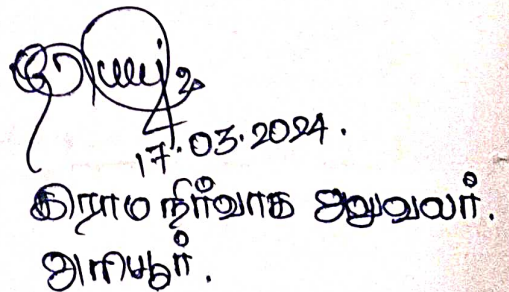 17.03.2024.
கிராம நிர்வாக அலுவலர்.
அரியூர்.